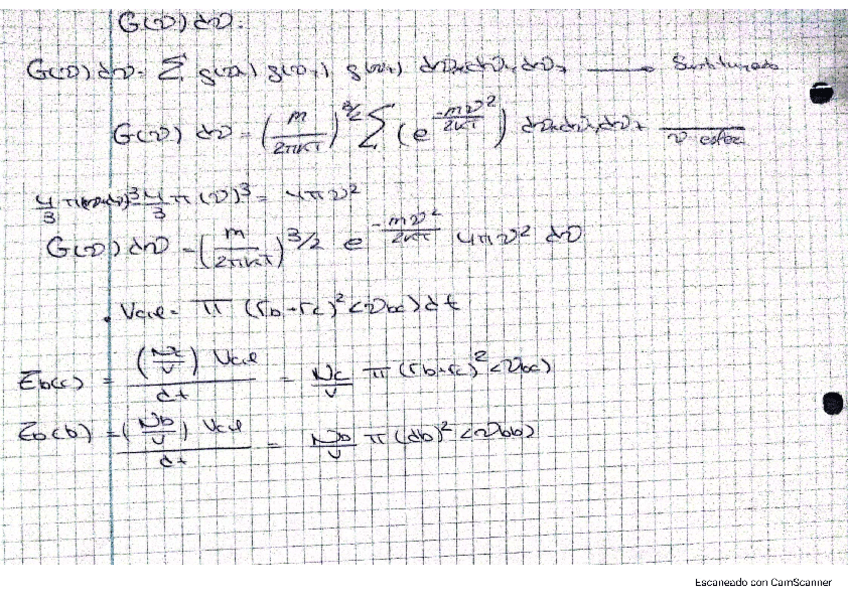 G(v) dv.
G(v) dv = Σ g(vx) g(vy) g(vz) dvx dvy dvz ⟶ Sustituyendo
G(v) dv = (m/2πKT)^3/2 Σ (e^(-mv²/2KT)) dvx dvy dvz v esfer
4/3 π(v+dv)³ 4/3 π (v)³ = 4πv²
G(v) dv = (m/2πKT)^3/2 e^(-mv²/2KT) 4πv² dv
. Vcil = π (rb+rc)² <vbc> dt
Zb(c) = (Nc/V) Vcil / dt = Nc/V π (rb+rc)² <vbc>
Zb(b) = (Nb/V) Vcil / dt = Nb/V π (db)² <vbb>
Escaneado con CamScanner